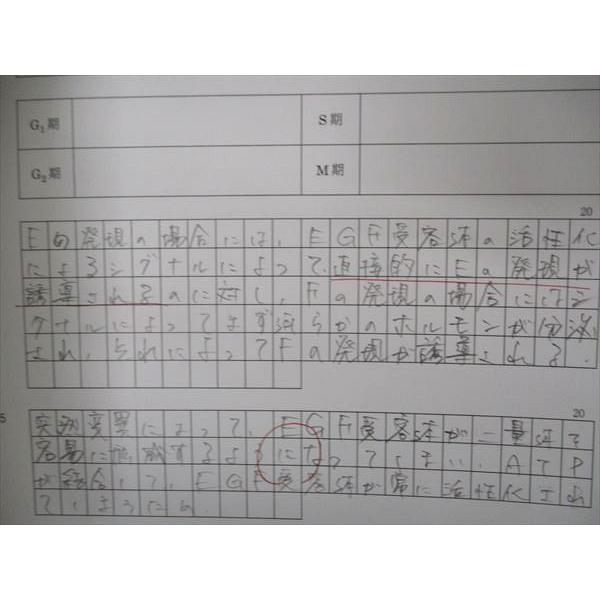 G₁期
S期
G₂期
M期
20
Eの発現の場合には、EGF受容体の活性化
によるシグナルによって、直接的にEの発現が
誘導されるのに対し、Fの発現の場合にはシ
グナルによってまず何らかのホルモンが分泌
され、それによってFの発現が誘導される。
5
20
突然変異によって、EGF受容体が二量体を
容易に形成するようになってしまい、ATP
が結合して、EGF受容体が常に活性化され
てしまうため。